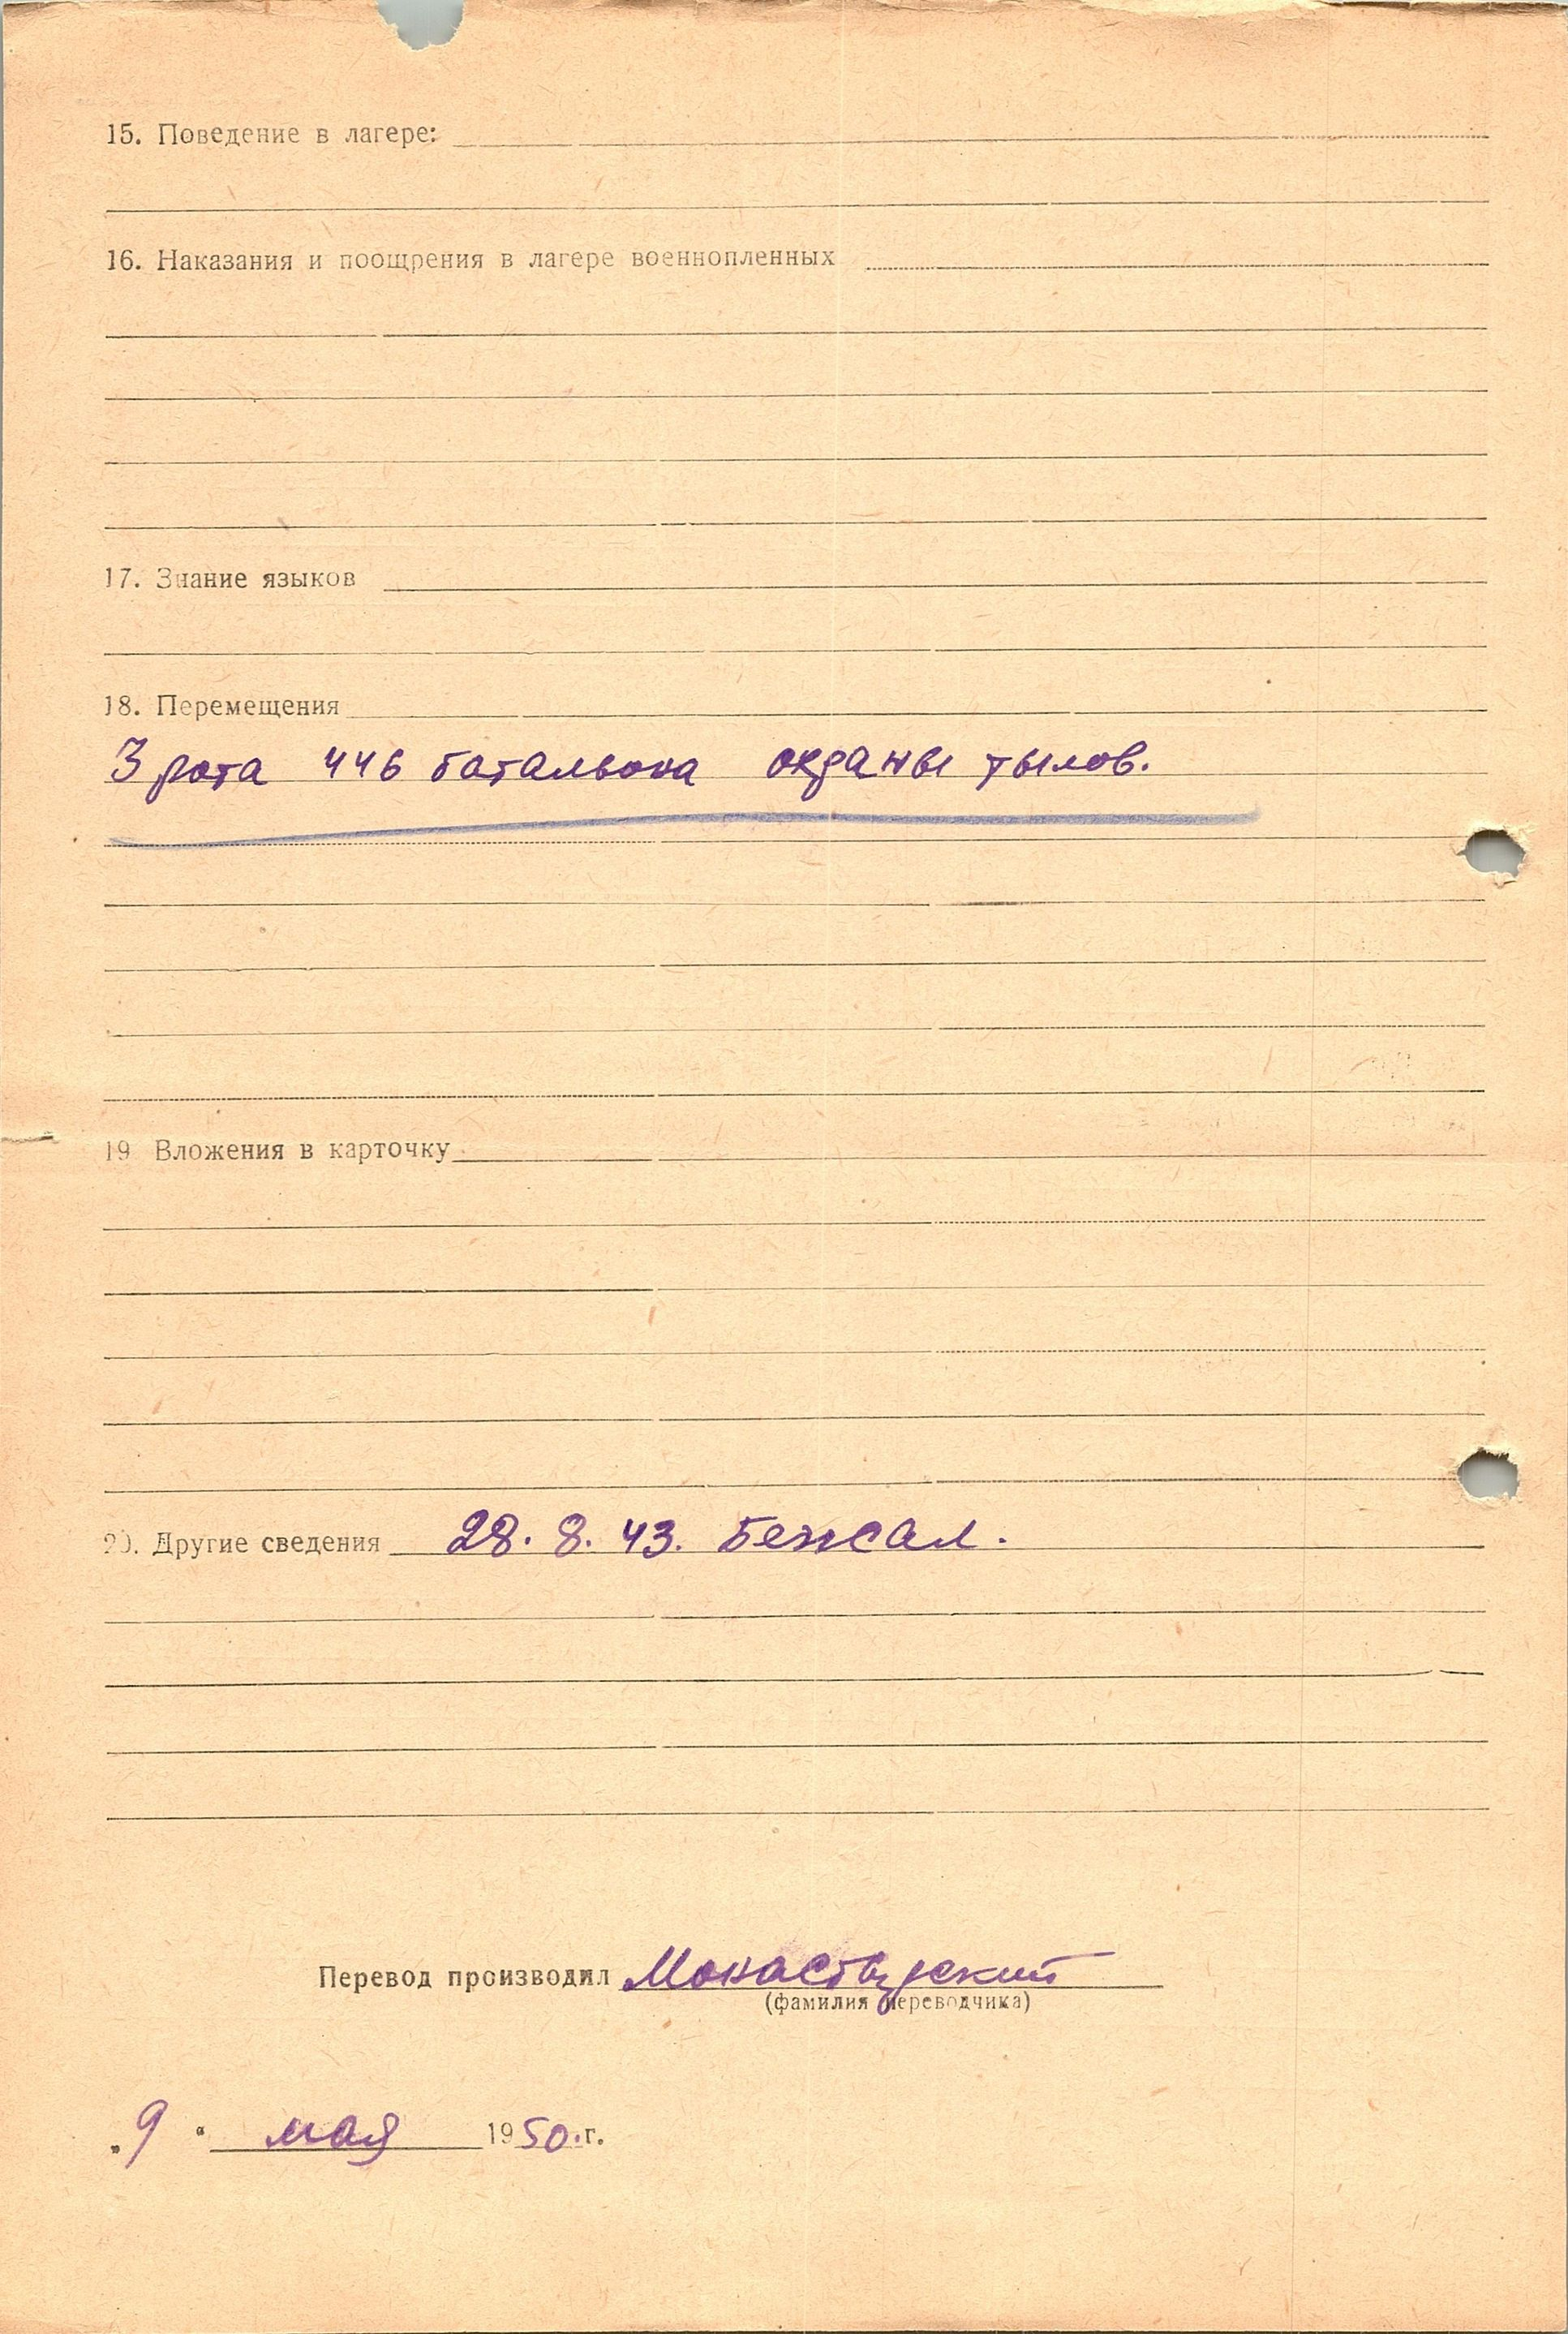 15. Поведение в лагере:
16. Наказания и поощрения в лагере военнопленных
17. Знание языков
18. Перемещения
3 рота 446 батальона охраны тылов.
19 Вложения в карточку
20. Другие сведения 28. 8. 43. Бежал.
Перевод производил Монастырский
(фамилия переводчика)
„9“ мая 1950.г.